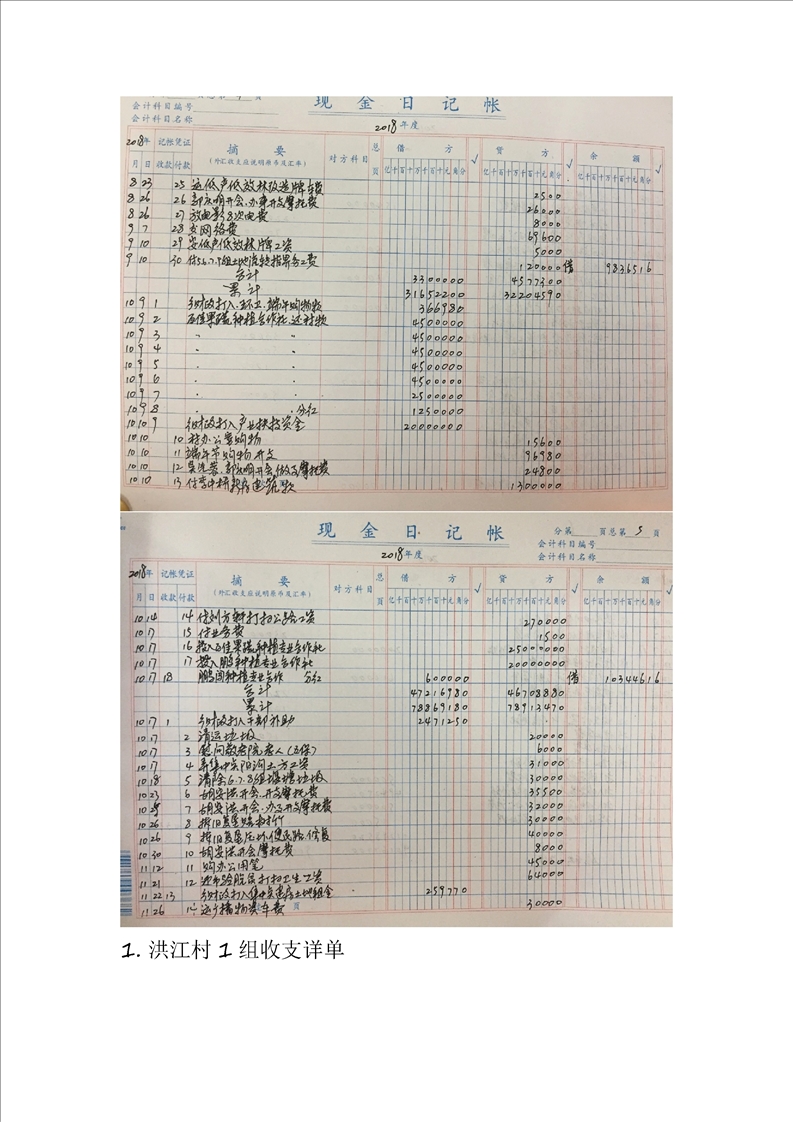 现金日记帐
会计科目编号
会计科目名称
2018年度
2018年 记帐凭证 摘要 对方科目 总页 借方 √ 贷方 √ 余额 √
月 日 收款 付款 (外汇收支应说明原币及汇率) 亿千百十万千百十元角分 亿千百十万千百十元角分 亿千百十万千百十元角分
8 23 25 运低产低效林改造牌车费 2500
8 26 26 开会、办事开支摩托费 26000
8 26 27 放电影8次电费 8000
9 7 28 支网络费 69600
9 10 29 安低产低效林牌工资 5000
9 10 30 付5.6.7.9组土地流转指界务工费 120000 借 9836516
合计 3300000 4577300
累计 31652200 32204590
10 9 1 乡财政打入、环卫、端午购物款 366980
10 9 2 种植合作社、还村款 4500000
10 9 3 〃 〃 4500000
10 9 4 · · 4500000
10 9 5 · · 4500000
10 9 6 · · 4500000
10 9 7 · · 2500000
10 9 8 · · 分红 1250000
10 10 9 乡财政打入产业扶持资金 20000000
10 10 10 村办公室购物 15600
10 10 11 端午节购物开支 96980
10 10 12 开会、做支摩托费 24800
10 10 13 付李中桥款 1300000
现金日记帐
分第 页总第 5 页
会计科目编号
会计科目名称
2018年度
2018年 记帐凭证 摘要 对方科目 总页 借方 √ 贷方 √ 余额 √
月 日 收款 付款 (外汇收支应说明原币及汇率) 亿千百十万千百十元角分 亿千百十万千百十元角分 亿千百十万千百十元角分
10 14 14 付刘方料打扫公路工资 270000
10 17 15 付业务费 1500
10 17 16 投入果蔬种植专业合作社 25000000
10 17 17 投入鹏种植专业合作社 20000000
10 17 18 鹏阔种植专业合作 分红 600000 借 10344616
合计 47216980 46708880
累计 78869180 78913470
10 17 1 乡财政打入干部补助 2471250
10 17 2 清运垃圾 20000
10 17 3 慰问敬老院老人(五保) 6000
10 17 4 弄集中安阳沟土方工资 31000
10 18 5 清除6.7.8组垃圾 30000
10 23 6 胡安洪开会、开支摩托费 35500
10 7 胡安洪开会、办事开支摩托费 32000
10 26 8 拆旧复垦 30000
10 26 9 拆旧复垦便民路修复 40000
10 30 10 胡安洪开会摩托费 8000
11 12 11 购办公用笔 45000
11 21 12 迎市验脱贫打扫卫生工资 64000
11 22 13 乡财政打入集中安建房土地租金 259770
11 26 运乡捐物资车费 30000
页
1. 洪江村1组收支详单